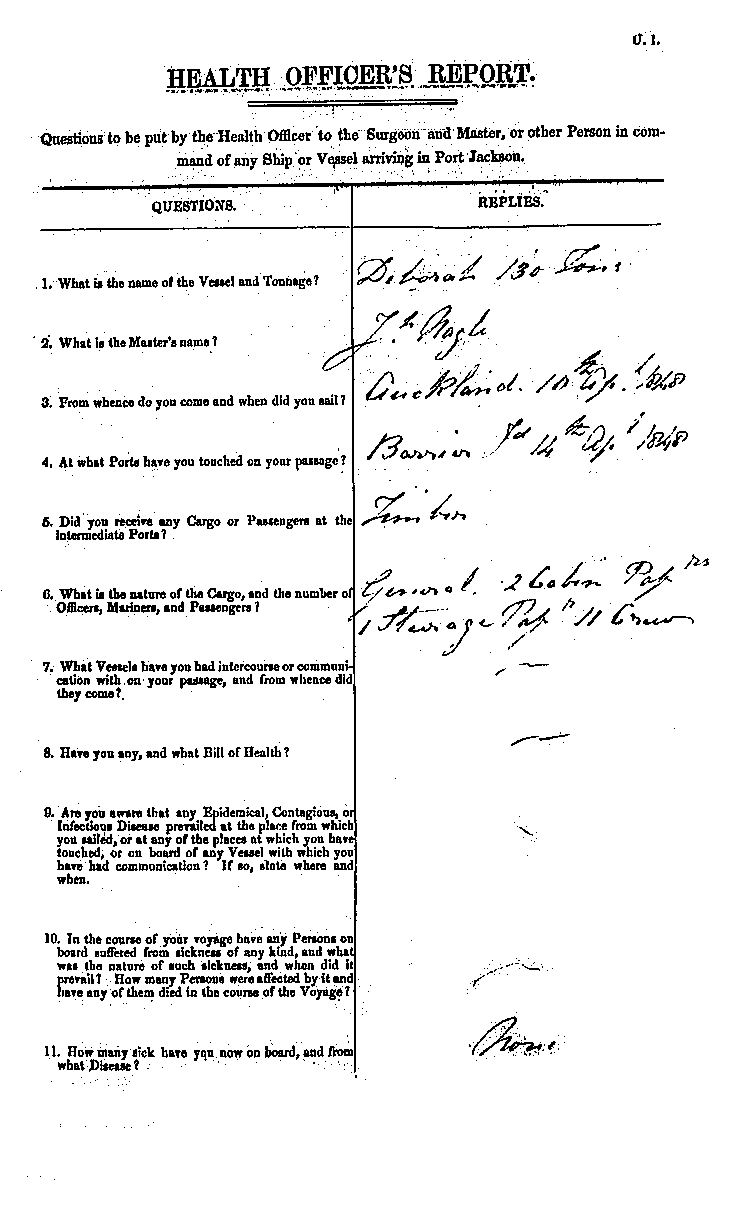 U. 1.
HEALTH OFFICER'S REPORT.
Questions to be put by the Health Officer to the Surgeon and Master, or other Person in com-
mand of any Ship or Vessel arriving in Port Jackson.
QUESTIONS.
REPLIES.
1. What is the name of the Vessel and Tonnage?
Deborah 130 Tons
2. What is the Master's name?
Jh Nagle
3. From whence do you come and when did you sail?
Auckland. 10th Apl 1848
4. At what Ports have you touched on your passage?
Barrier Id 14th Apl 1848
5. Did you receive any Cargo or Passengers at the
Intermediate Ports?
Timber
6. What is the nature of the Cargo, and the number of
Officers, Mariners, and Passengers?
General. 2 Cabin Passrs
1 Steerage Passr 11 Crew
7. What Vessels have you had intercourse or communi-
cation with on your passage, and from whence did
they come?
—
8. Have you any, and what Bill of Health?
—
9. Are you aware that any Epidemical, Contagious, or
Infectious Disease prevailed at the place from which
you sailed, or at any of the places at which you have
touched, or on board of any Vessel with which you
have had communication? If so, state where and
when.
10. In the course of your voyage have any Persons on
board suffered from sickness of any kind, and what
was the nature of such sickness, and when did it
prevail? How many Persons were affected by it and
have any of them died in the course of the Voyage?
—
11. How many sick have you now on board, and from
what Disease?
None